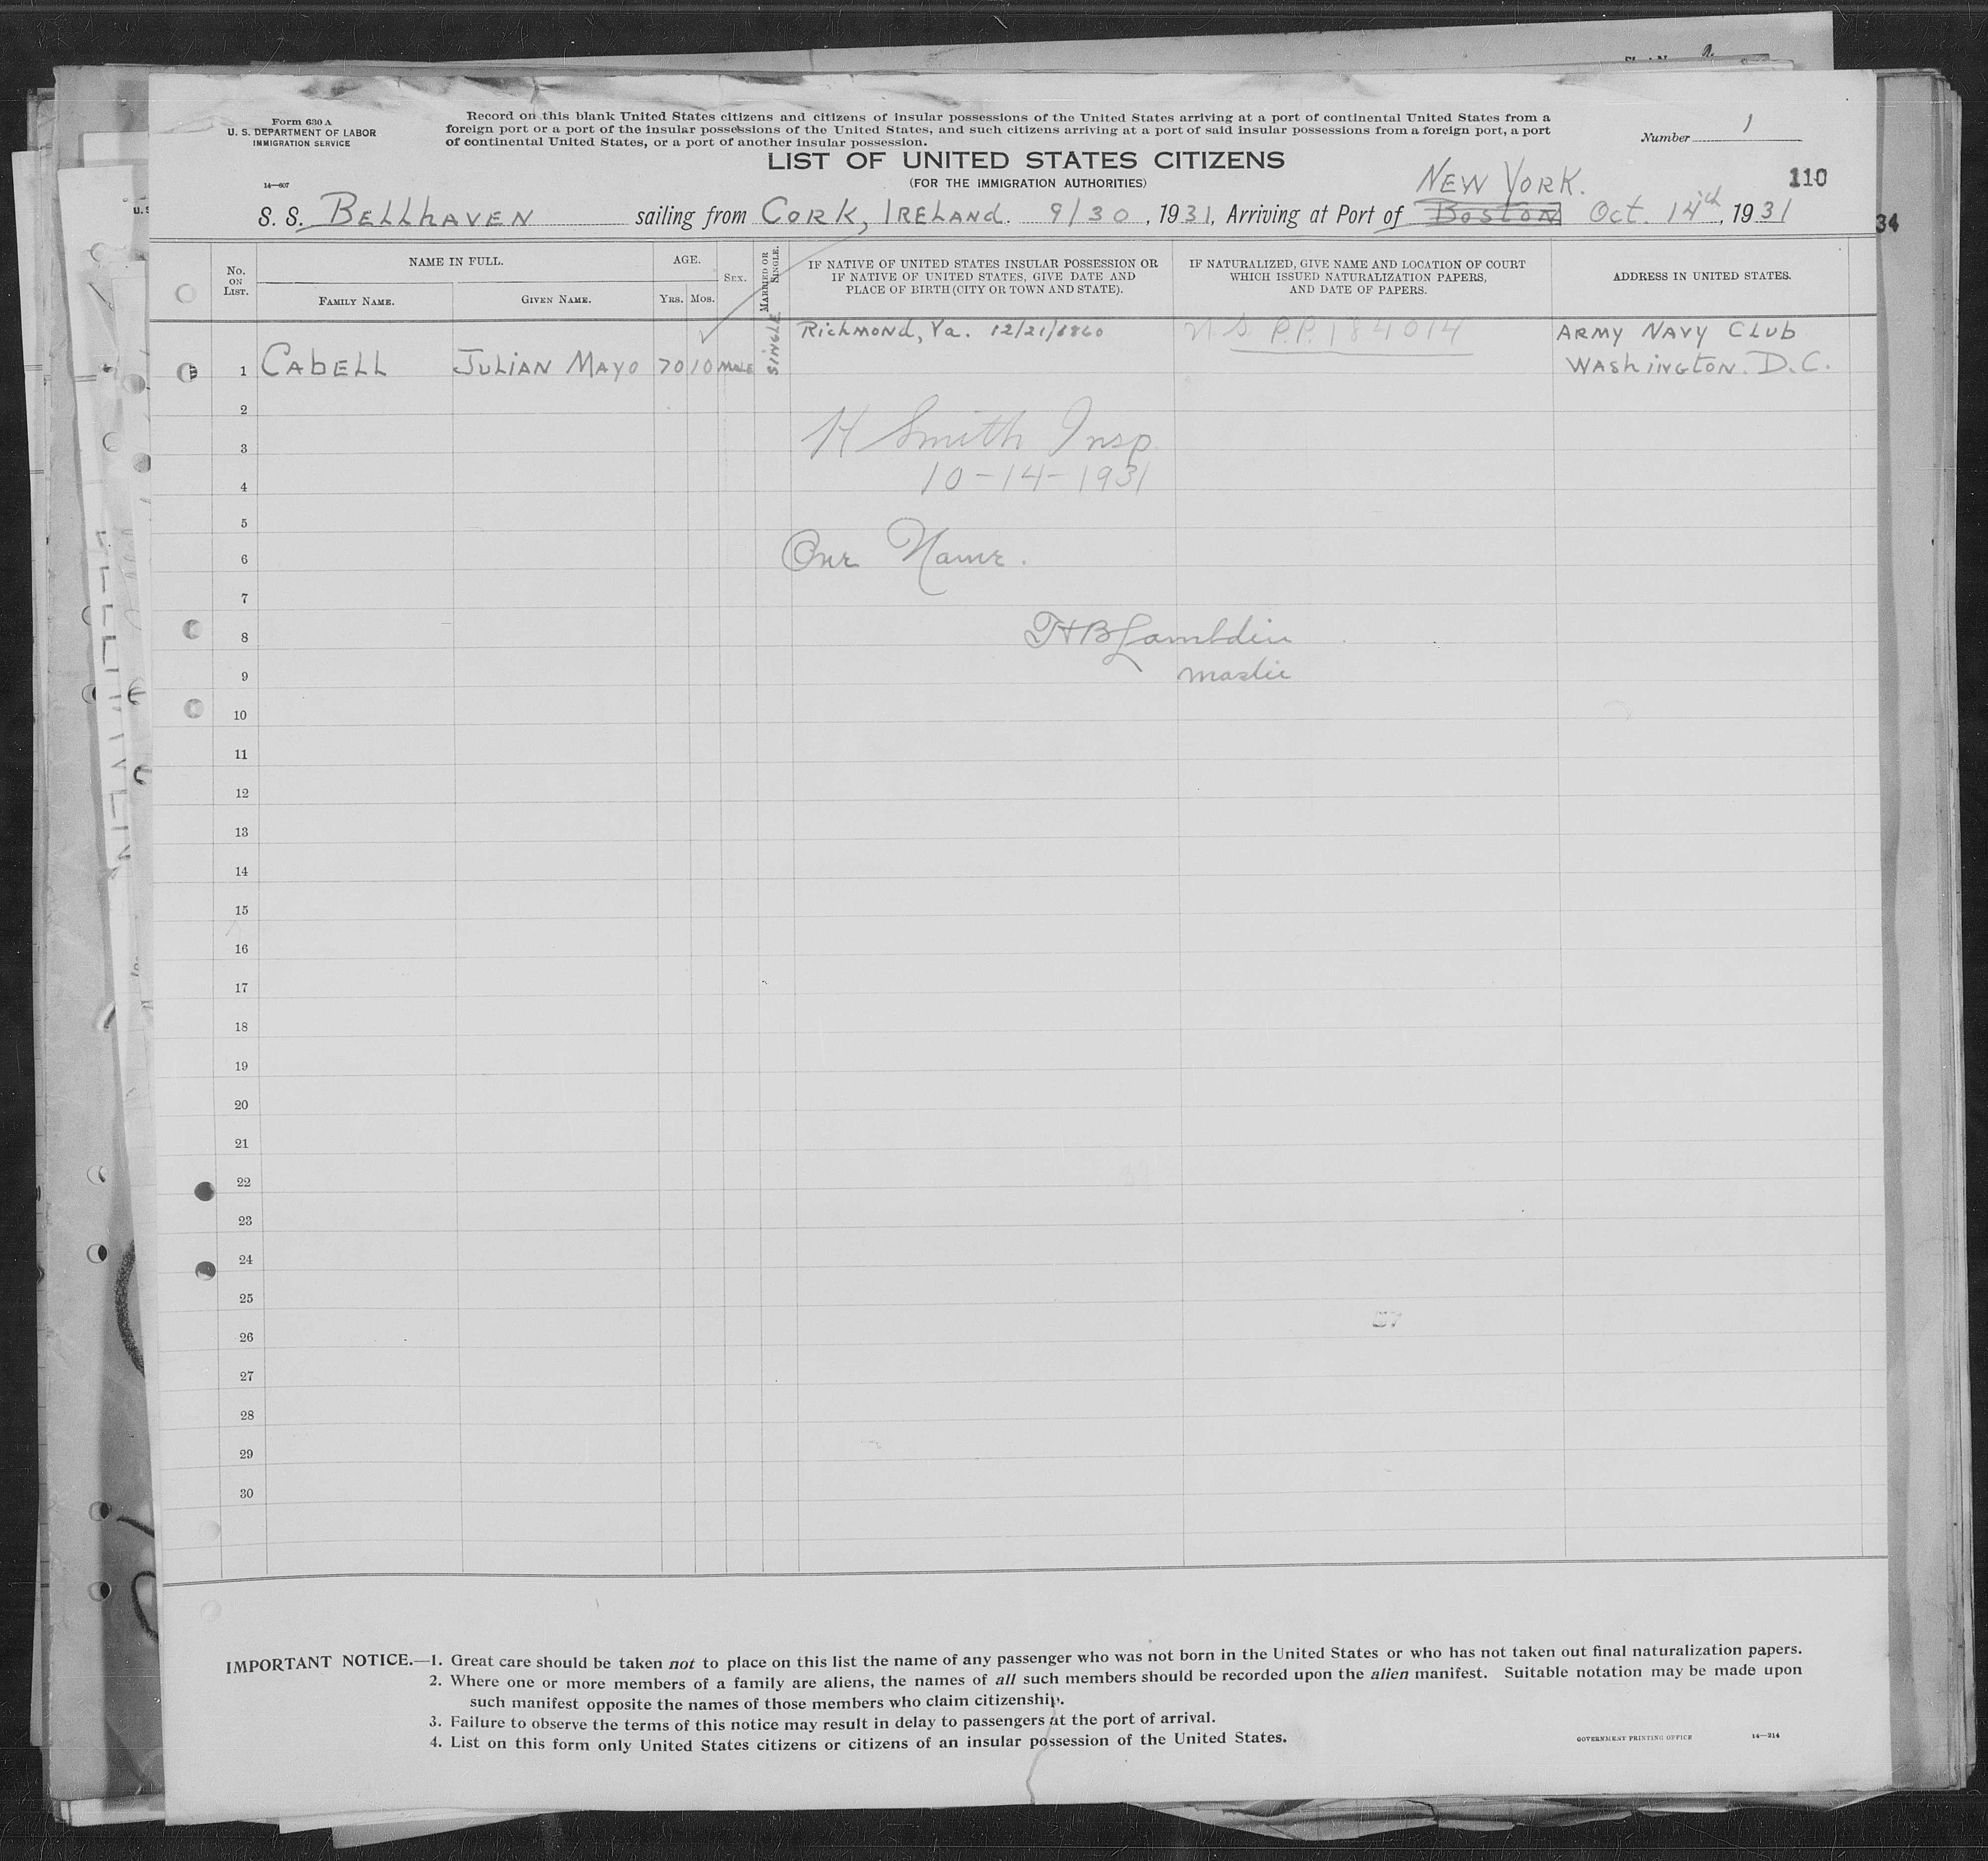 Form 630 A
U. S. DEPARTMENT OF LABOR
IMMIGRATION SERVICE
14—607
Record on this blank United States citizens and citizens of insular possessions of the United States arriving at a port of continental United States from a
foreign port or a port of the insular possessions of the United States, and such citizens arriving at a port of said insular possessions from a foreign port, a port
of continental United States, or a port of another insular possession.
Number 1
LIST OF UNITED STATES CITIZENS
(FOR THE IMMIGRATION AUTHORITIES)
110
34
NEW YORK.
S. S. BELLHAVEN sailing from CORK, IRELAND. 9/30, 1931, Arriving at Port of Boston Oct. 14th, 1931
No. ON LIST.
NAME IN FULL.
FAMILY NAME.
GIVEN NAME.
AGE.
YRS.
MOS.
SEX.
MARRIED OR SINGLE.
IF NATIVE OF UNITED STATES INSULAR POSSESSION OR
IF NATIVE OF UNITED STATES, GIVE DATE AND
PLACE OF BIRTH (CITY OR TOWN AND STATE).
IF NATURALIZED, GIVE NAME AND LOCATION OF COURT
WHICH ISSUED NATURALIZATION PAPERS,
AND DATE OF PAPERS.
ADDRESS IN UNITED STATES.
1 CABELL JULIAN MAYO 70 10 MALE SINGLE Richmond, Va. 12/21/1860 U.S. P.P. 184014 ARMY NAVY CLUB
WASHINGTON. D.C.
2
H Smith Insp.
3
10-14-1931
4
5
One Name.
6
7
8
HB Lambdin
9
Master
10
11
12
13
14
15
16
17
18
19
20
21
22
23
24
25
26
27
28
29
30
IMPORTANT NOTICE.—1. Great care should be taken not to place on this list the name of any passenger who was not born in the United States or who has not taken out final naturalization papers.
2. Where one or more members of a family are aliens, the names of all such members should be recorded upon the alien manifest. Suitable notation may be made upon
such manifest opposite the names of those members who claim citizenship.
3. Failure to observe the terms of this notice may result in delay to passengers at the port of arrival.
4. List on this form only United States citizens or citizens of an insular possession of the United States.
GOVERNMENT PRINTING OFFICE 14—214